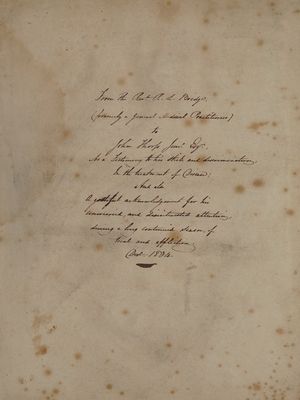 From the Revd. R. S. Bredge
(formerly a general Medical Practitioner)
to
John Thorp Junr. Esqr.
As a Testimony to his skill and discrimination
In the treatment of Disease;
And also
A grateful acknowledgment for his
unwearied, and disinterested attention,
during a long continued season of
trial and affliction.
1834.